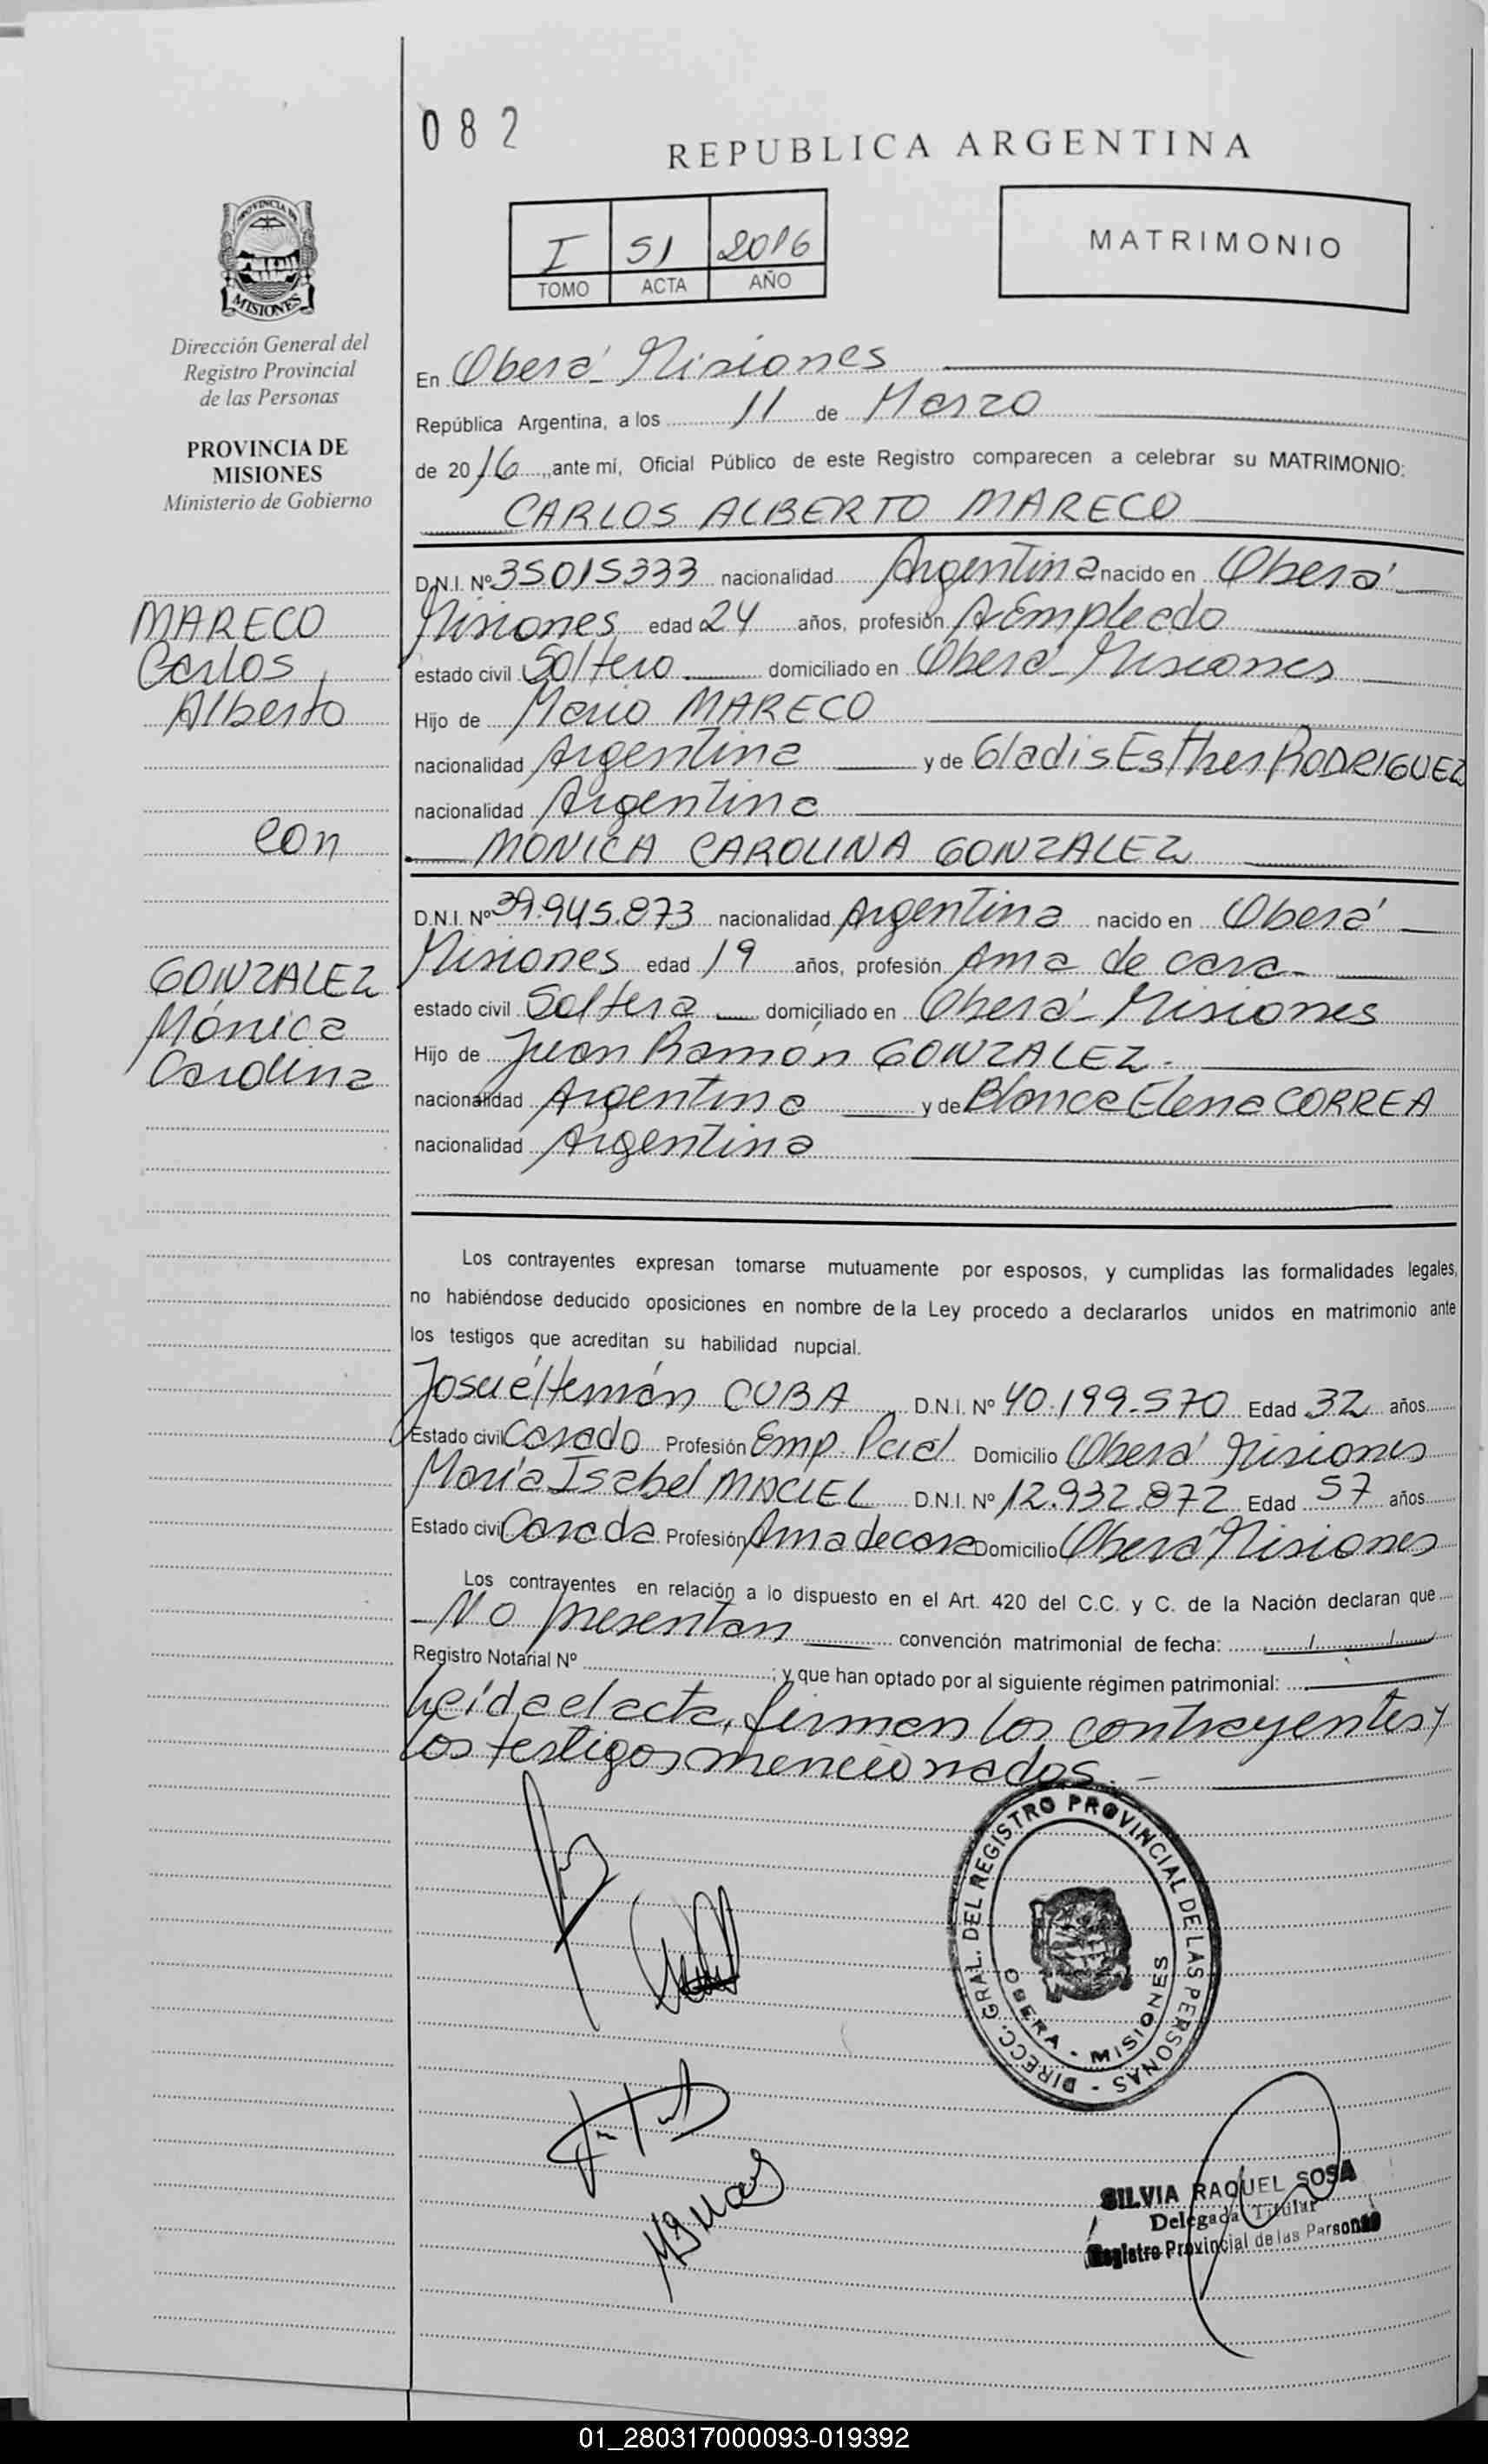 082
REPUBLICA ARGENTINA
I 51 2016
TOMO ACTA AÑO
MATRIMONIO
PROVINCIA DE
MISIONES
Dirección General del
Registro Provincial
de las Personas
PROVINCIA DE
MISIONES
Ministerio de Gobierno
MARECO
Carlos
Alberto
con
GONZALEZ
Mónica
Carolina
En Oberá - Misiones
República Argentina, a los 11 de Marzo
de 2016, ante mí, Oficial Público de este Registro comparecen a celebrar su MATRIMONIO:
CARLOS ALBERTO MARECO
D.N.I. Nº 35015333 nacionalidad Argentina nacido en Oberá
Misiones edad 24 años, profesión Empleado
estado civil Soltero domiciliado en Oberá - Misiones
Hijo de Mario MARECO
nacionalidad Argentina y de Gladis Esther RODRIGUEZ
nacionalidad Argentina
MÓNICA CAROLINA GONZALEZ
D.N.I. Nº 39.945.873 nacionalidad Argentina nacido en Oberá
Misiones edad 19 años, profesión Ama de casa
estado civil Soltera domiciliado en Oberá - Misiones
Hijo de Juan Ramón GONZALEZ.
nacionalidad Argentina y de Blanca Elena CORREA
nacionalidad Argentina
Los contrayentes expresan tomarse mutuamente por esposos, y cumplidas las formalidades legales,
no habiéndose deducido oposiciones en nombre de la Ley procedo a declararlos unidos en matrimonio ante
los testigos que acreditan su habilidad nupcial.
Josué Hernán CUBA D.N.I. Nº 40.199.570 Edad 32 años
Estado civil Casado Profesión Emp. Domicilio Oberá Misiones
María Isabel MACIEL D.N.I. Nº 12.932.872 Edad 57 años
Estado civil Casada Profesión Ama de casa Domicilio Oberá Misiones
Los contrayentes en relación a lo dispuesto en el Art. 420 del C.C. y C. de la Nación declaran que
No presentan convención matrimonial de fecha: / /
Registro Notarial Nº ; y que han optado por al siguiente régimen patrimonial:
Leída el acta, firman los contrayentes y
los testigos mencionados.
DIRECC. GRAL. DEL REGISTRO PROVINCIAL DE LAS PERSONAS -
OBERA - MISIONES
SILVIA RAQUEL SOSA
Delegada Titular
Registro Provincial de las Personas
01_280317000093-019392